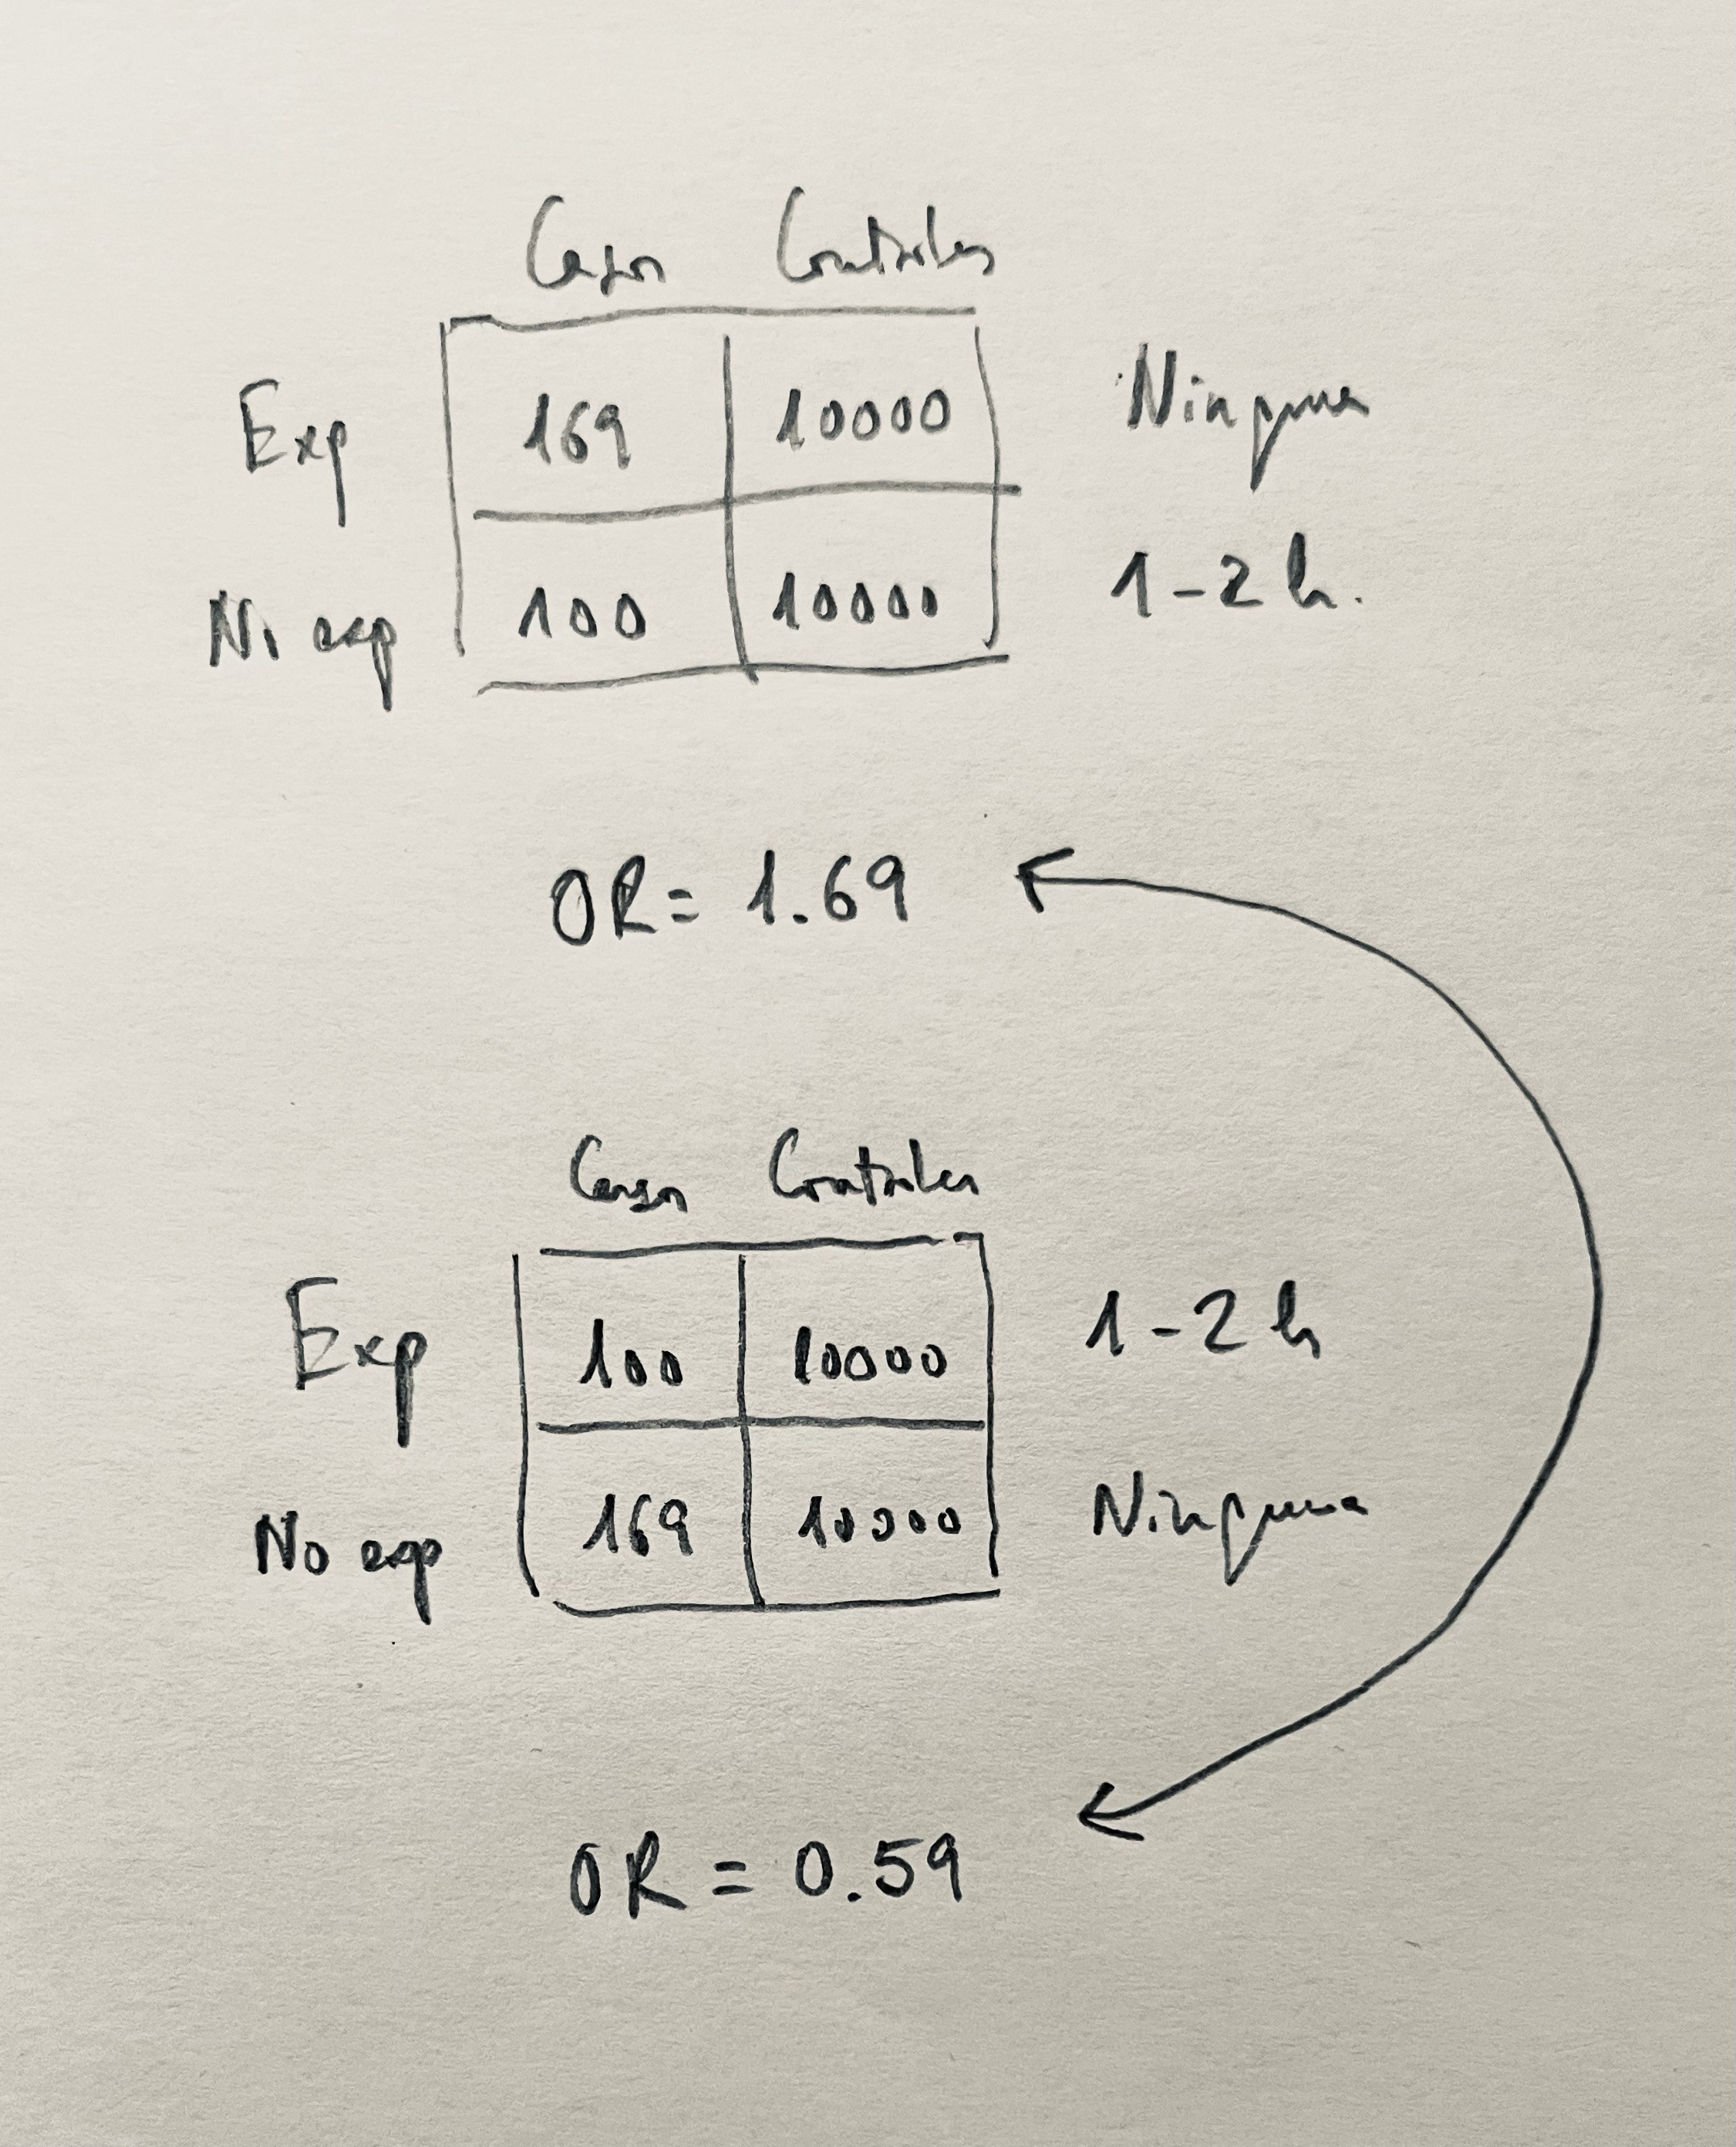 Casos Controles
Exp 169 10000 Ninguna
No exp 100 10000 1-2 h.
OR = 1.69
Casos Controles
Exp 100 10000 1-2 h
No exp 169 10000 Ninguna
OR = 0.59